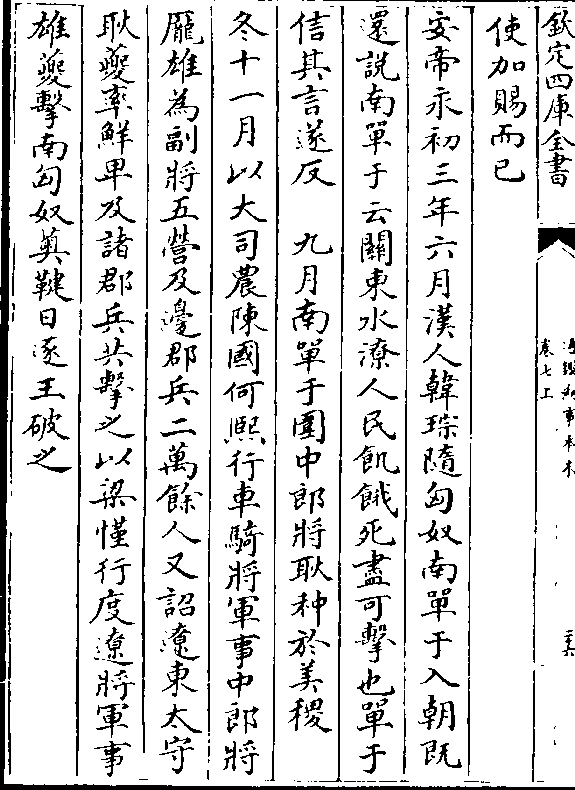 欽定四庫全書
通鑑紀事本末
卷七上
使加賜而已
安帝永初三年六月漢人韓琮隨匈奴南單于入朝既
還説南單于云關東水潦人民飢餓死盡可擊也單于
信其言遂反　九月南單于圍中郎將耿种於美稷
冬十一月以大司農陳國何熙行車騎將軍事中郎將
龐雄為副將五營及邊郡兵二萬餘人又詔遼東太守
耿夔率鮮卑及諸郡兵共擊之以梁慬行度遼將軍事
雄夔擊南匈奴薁鞬日逐王破之